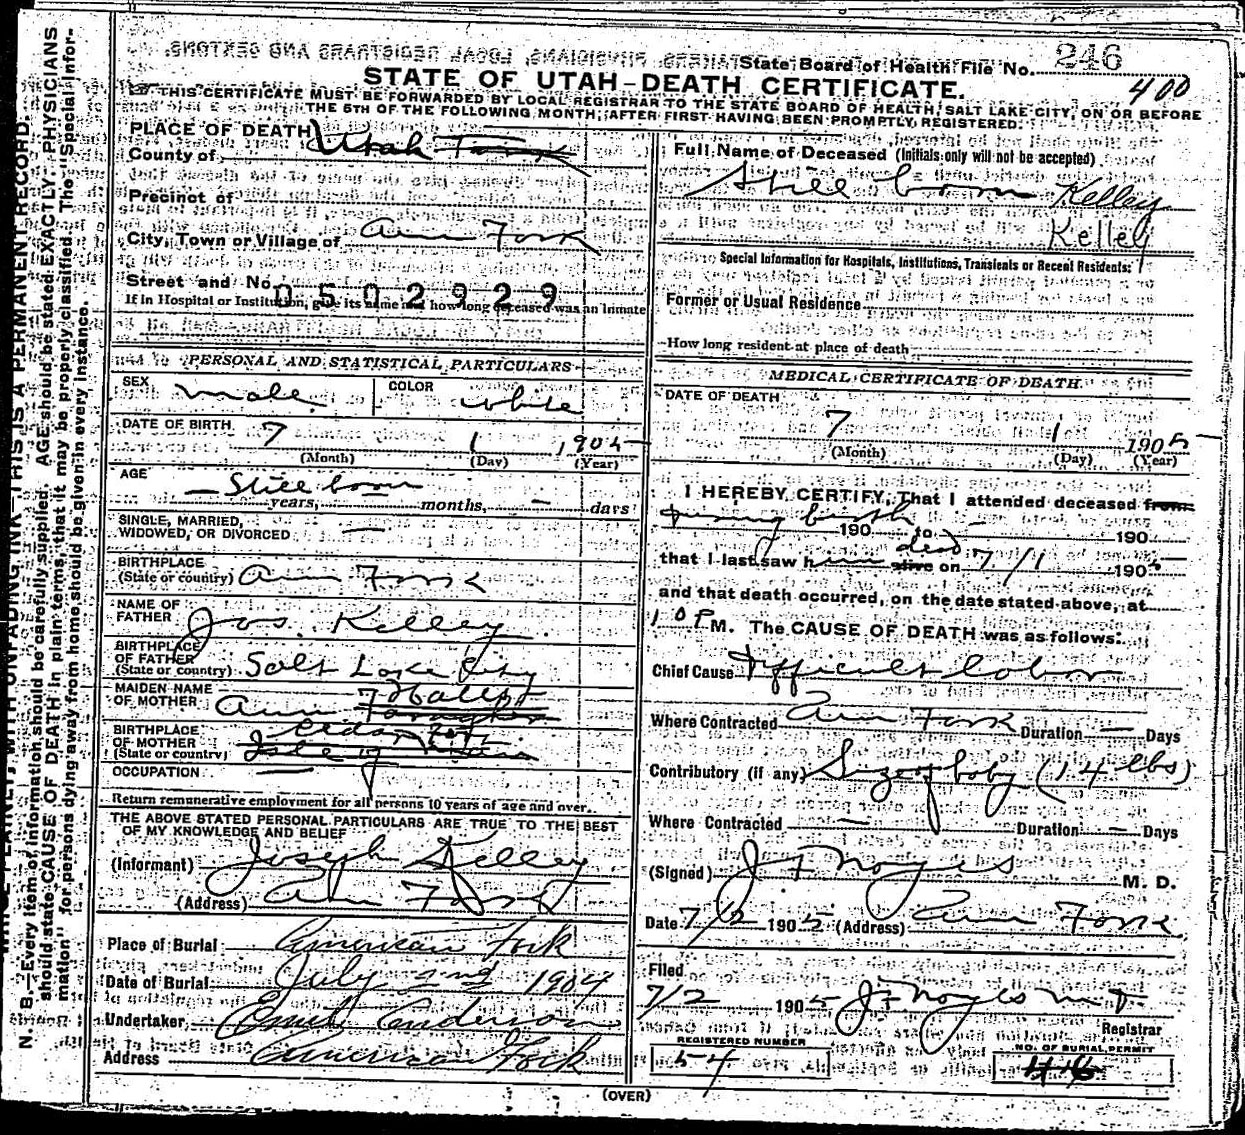 State Board of Health File No. 246
STATE OF UTAH-DEATH CERTIFICATE.
400
THIS CERTIFICATE MUST BE FORWARDED BY LOCAL REGISTRAR TO THE STATE BOARD OF HEALTH, SALT LAKE CITY, ON OR BEFORE
THE 5TH OF THE FOLLOWING MONTH, AFTER FIRST HAVING BEEN PROMPTLY REGISTERED.
PLACE OF DEATH
County of Utah
Precinct of
City, Town or Village of Am Fork
Street and No.
0502929
If in Hospital or Institution, give its name and how long deceased was an Inmate
PERSONAL AND STATISTICAL PARTICULARS
SEX male COLOR white
DATE OF BIRTH 7 1 1905
(Month) (Day) (Year)
AGE
— Still born
years, months, — days
SINGLE, MARRIED,
WIDOWED, OR DIVORCED —
BIRTHPLACE
(State or country) Am Fork
NAME OF
FATHER Jos. Kelley
BIRTHPLACE
OF FATHER
(State or country) Salt Lake City
MAIDEN NAME
OF MOTHER Ann
BIRTHPLACE
OF MOTHER
(State or country) Isle of
OCCUPATION —
Return remunerative employment for all persons 10 years of age and over.
THE ABOVE STATED PERSONAL PARTICULARS ARE TRUE TO THE BEST
OF MY KNOWLEDGE AND BELIEF
(Informant) Joseph Kelley
(Address) Am Fork
Place of Burial American Fork
Date of Burial July 2nd 1904
Undertaker Emil Anderson
Address American Fork
Full Name of Deceased (Initials only will not be accepted)
Still born Kelley
Kelley
Special Information for Hospitals, Institutions, Transients or Recent Residents:
Former or Usual Residence
How long resident at place of death
MEDICAL CERTIFICATE OF DEATH
DATE OF DEATH
7 1 1905
(Month) (Day) (Year)
I HEREBY CERTIFY, That I attended deceased from
during birth 190 to — 190
dead
that I last saw him alive on 7/1 1905
and that death occurred, on the date stated above, at
10 P M. The CAUSE OF DEATH was as follows:
Chief Cause Difficult labor
Where Contracted Am Fork Duration — Days
Contributory (if any) Size of baby (14 lbs)
Where Contracted — Duration — Days
(Signed) J F Noyes M. D.
Date 7/2 1905 (Address) Am Fork
Filed
7/2 1905 J F Noyes M D
Registrar
REGISTERED NUMBER
54
NO. OF BURIAL PERMIT
(OVER)
N. B.—Every item of information should be carefully supplied. AGE should be stated EXACTLY. PHYSICIANS
should state CAUSE OF DEATH in plain terms, that it may be properly classified. The "Special Infor-
mation" for persons dying away from home should be given in every instance.